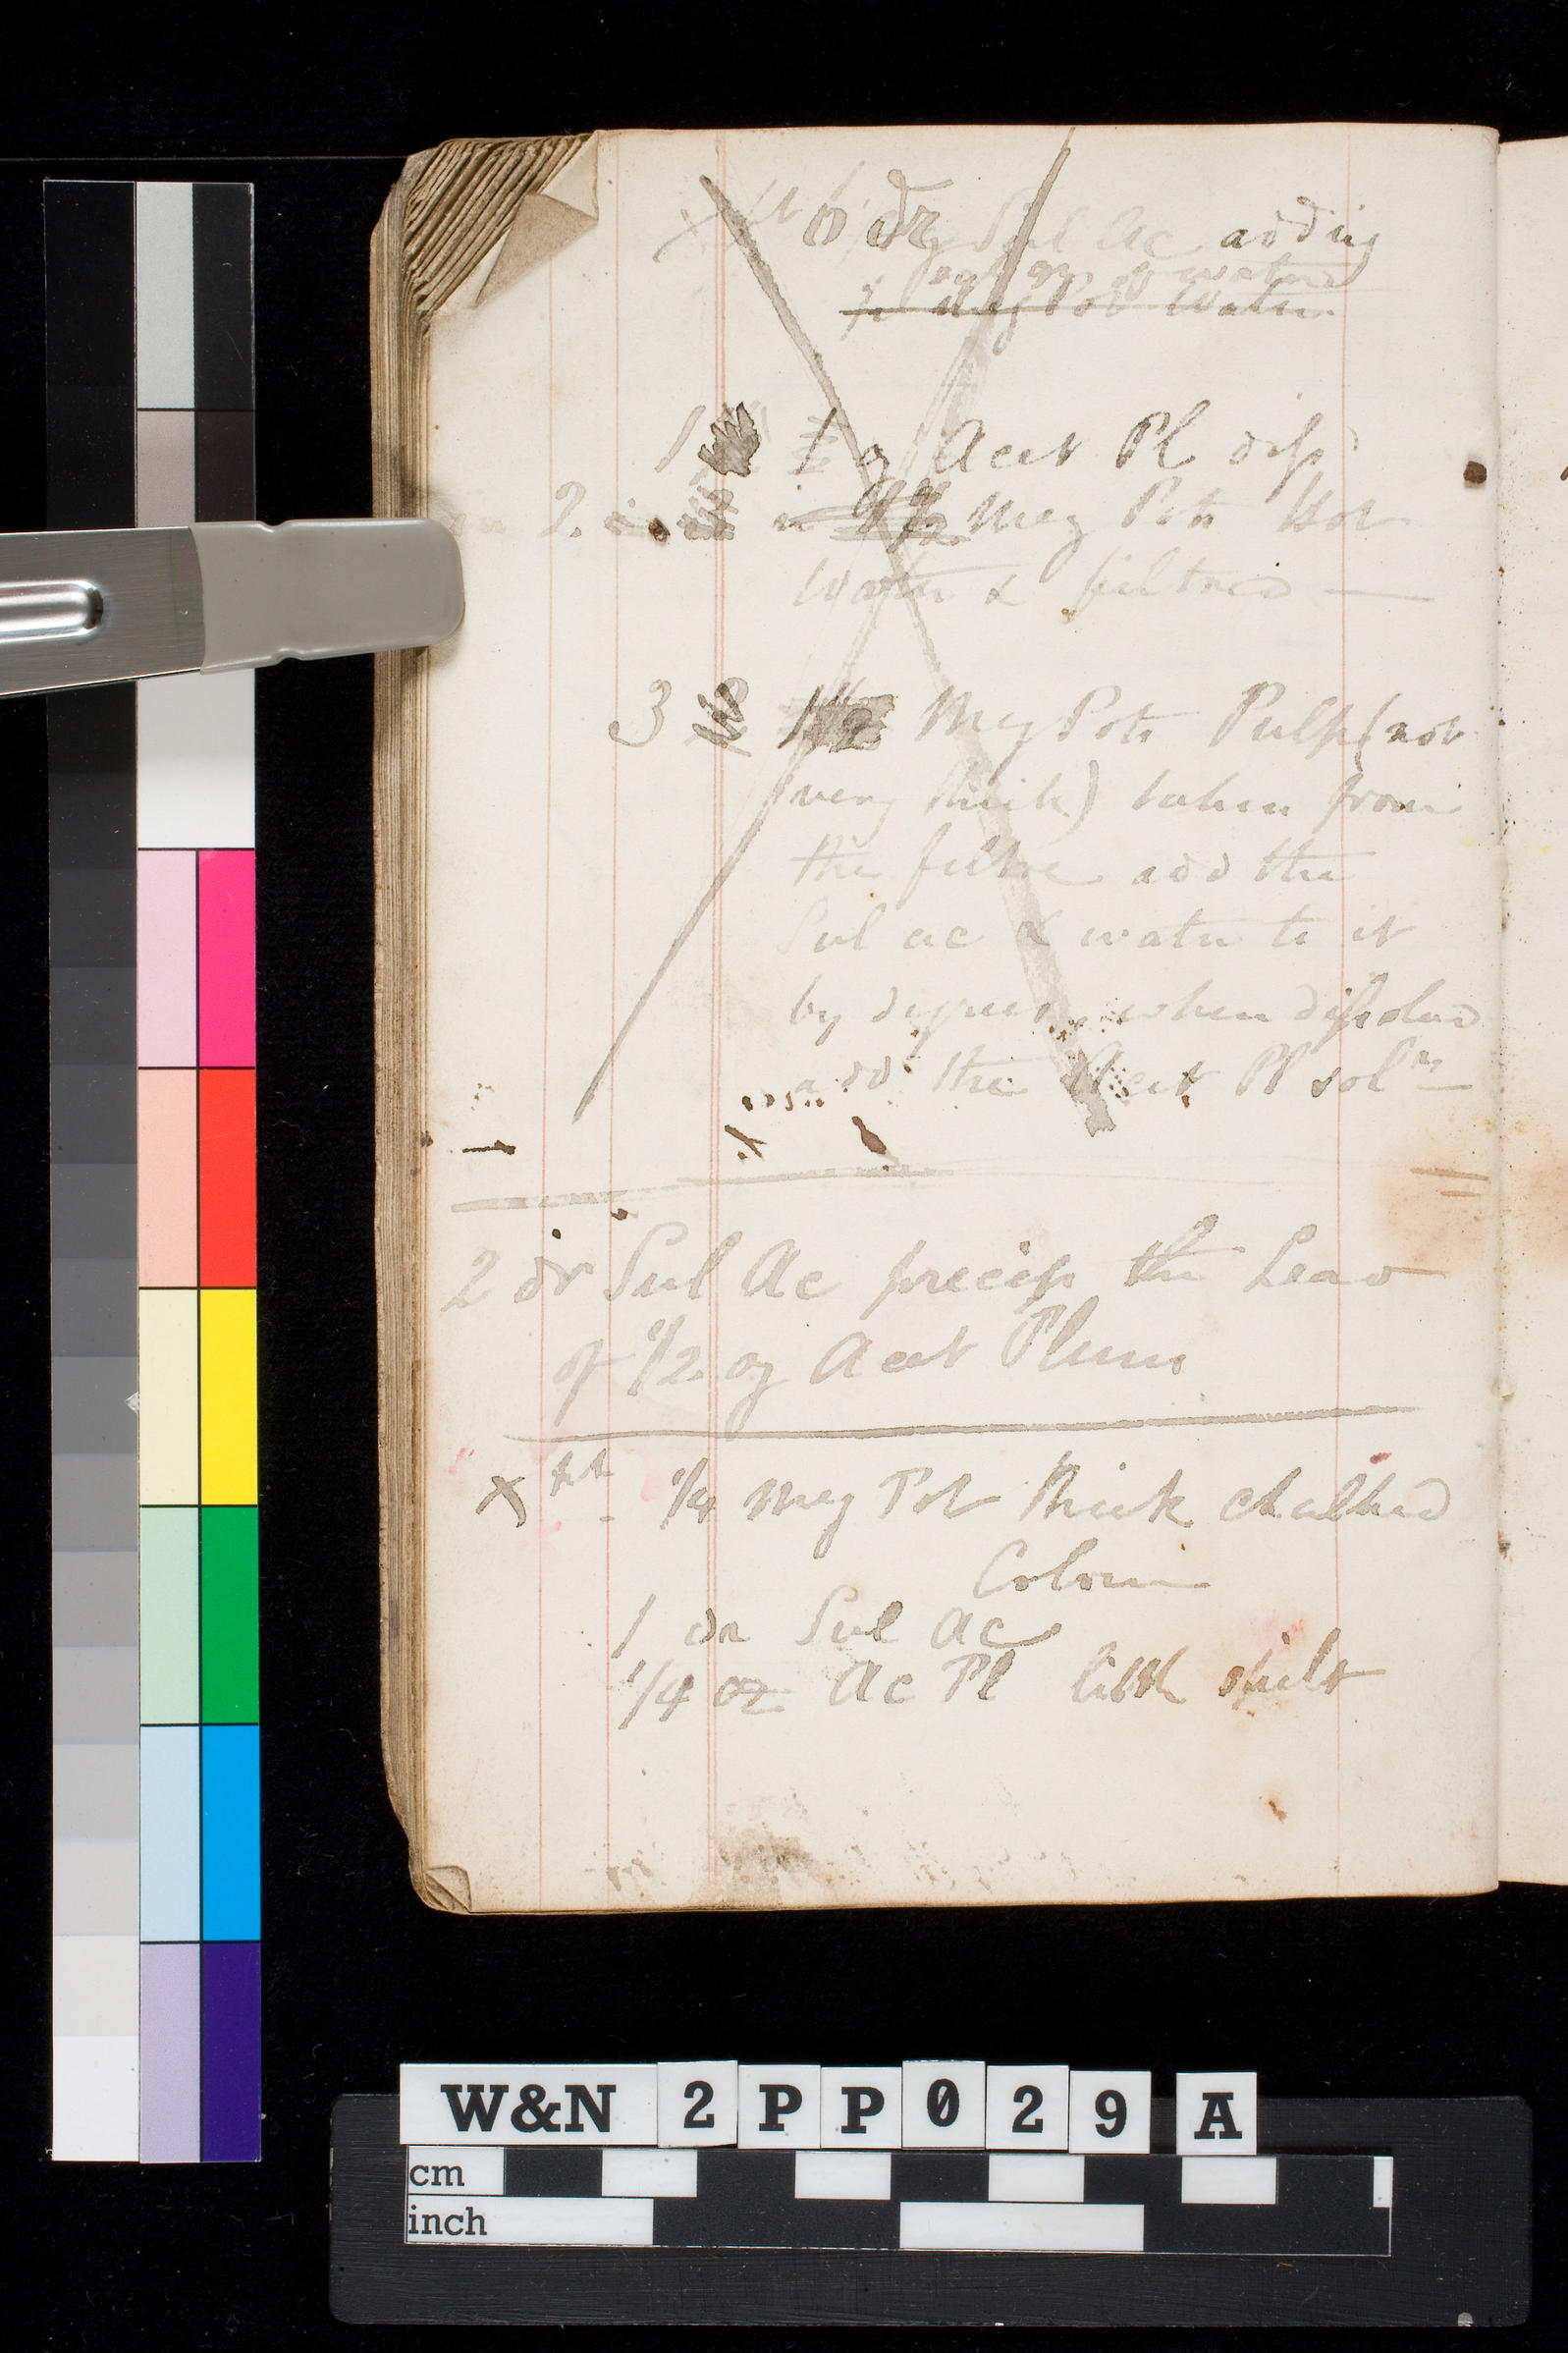 6 dr Sul Ac adding
eql qy of water
Meg Pot Water
1 1 oz Acet Pl diss
2. in Meg Pot Hot
Water & filtred —
3 Meg Pots Pulp (not
very thick) taken from
the filtre add the
Sul ac & water to it
by degrees, when dissolved
add the Acet Pl sol^n —
2 dr Sul Ac precip the Lead
of 1/2 oz Acet Plum
x 1/4 Meg Pot thick chalked
Colour
1 dr Sul Ac
1/4 oz Ac Pl little spilt
W&N 2PP029 A
cm
inch